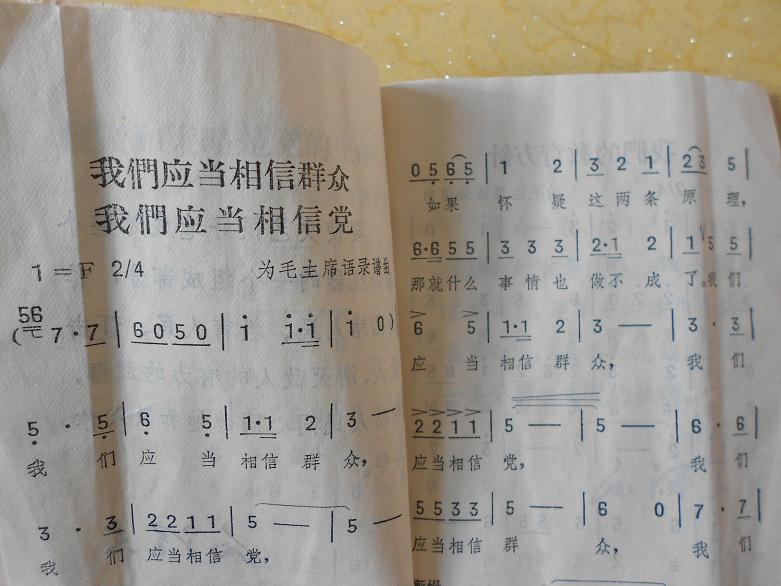 我們应当相信群众
我們应当相信党
1=F 2/4
为毛主席语录谱曲
56
(7·7 | 6 0 5 0 | i i·i | i 0)
5 · 5 | 6 5 | 1·1 2 | 3 —
我 们 应 当 相信 群 众,
3 · 3 | 2 2 1 1 | 5 — | 5 —
我 们 应当相信 党,
0 5 6 5 | 1 2 | 3 2 1 | 2 3 5 |
如果 怀 疑 这 两 条 原 理,
6·6 5 5 | 3 3 3 | 2·1 2 | 1 5 5 |
那就什么 事 情 也 做不 成 了。我 们
6 5 | 1·1 2 | 3 — | 3 · 3 |
应 当 相信 群 众, 我 们
2 2 1 1 | 5 — | 5 — | 6 · 6 |
应当相信 党, 我 们
5 5 3 3 | 5 — | 6 0 | 7 · 7 |
应当相信 群 众, 我 们